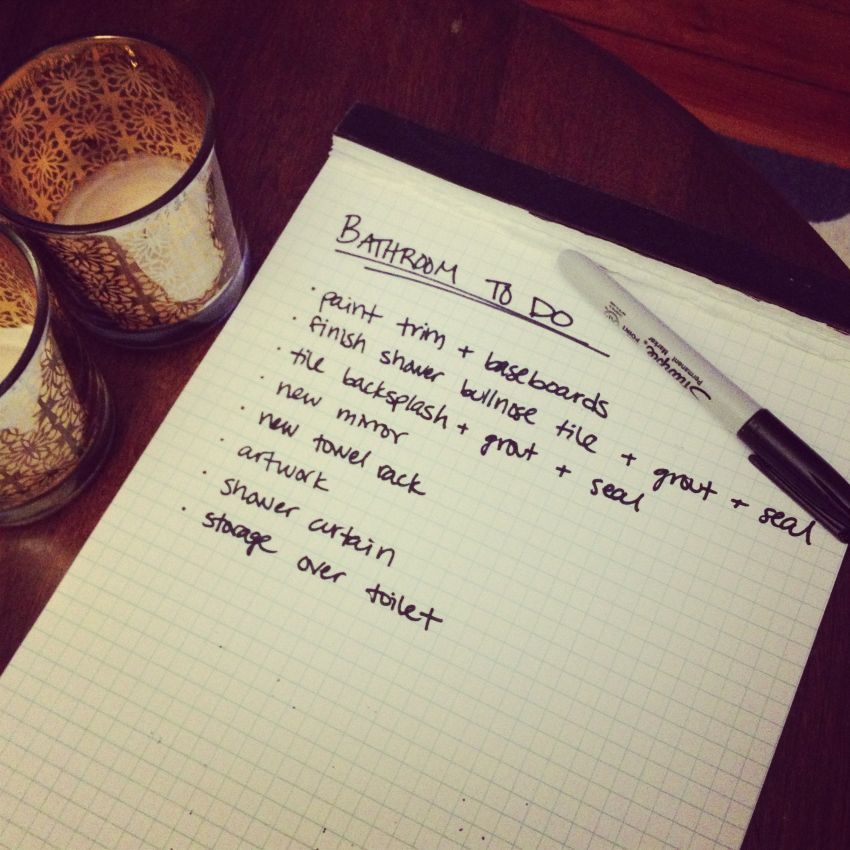 BATHROOM TO DO
· paint trim + baseboards
· finish shower bullnose tile + grout + seal
· tile backsplash + grout + seal
· new mirror
· new towel rack
· artwork
· shower curtain
· storage over toilet
Sharpie. FINE POINT
Permanent Marker